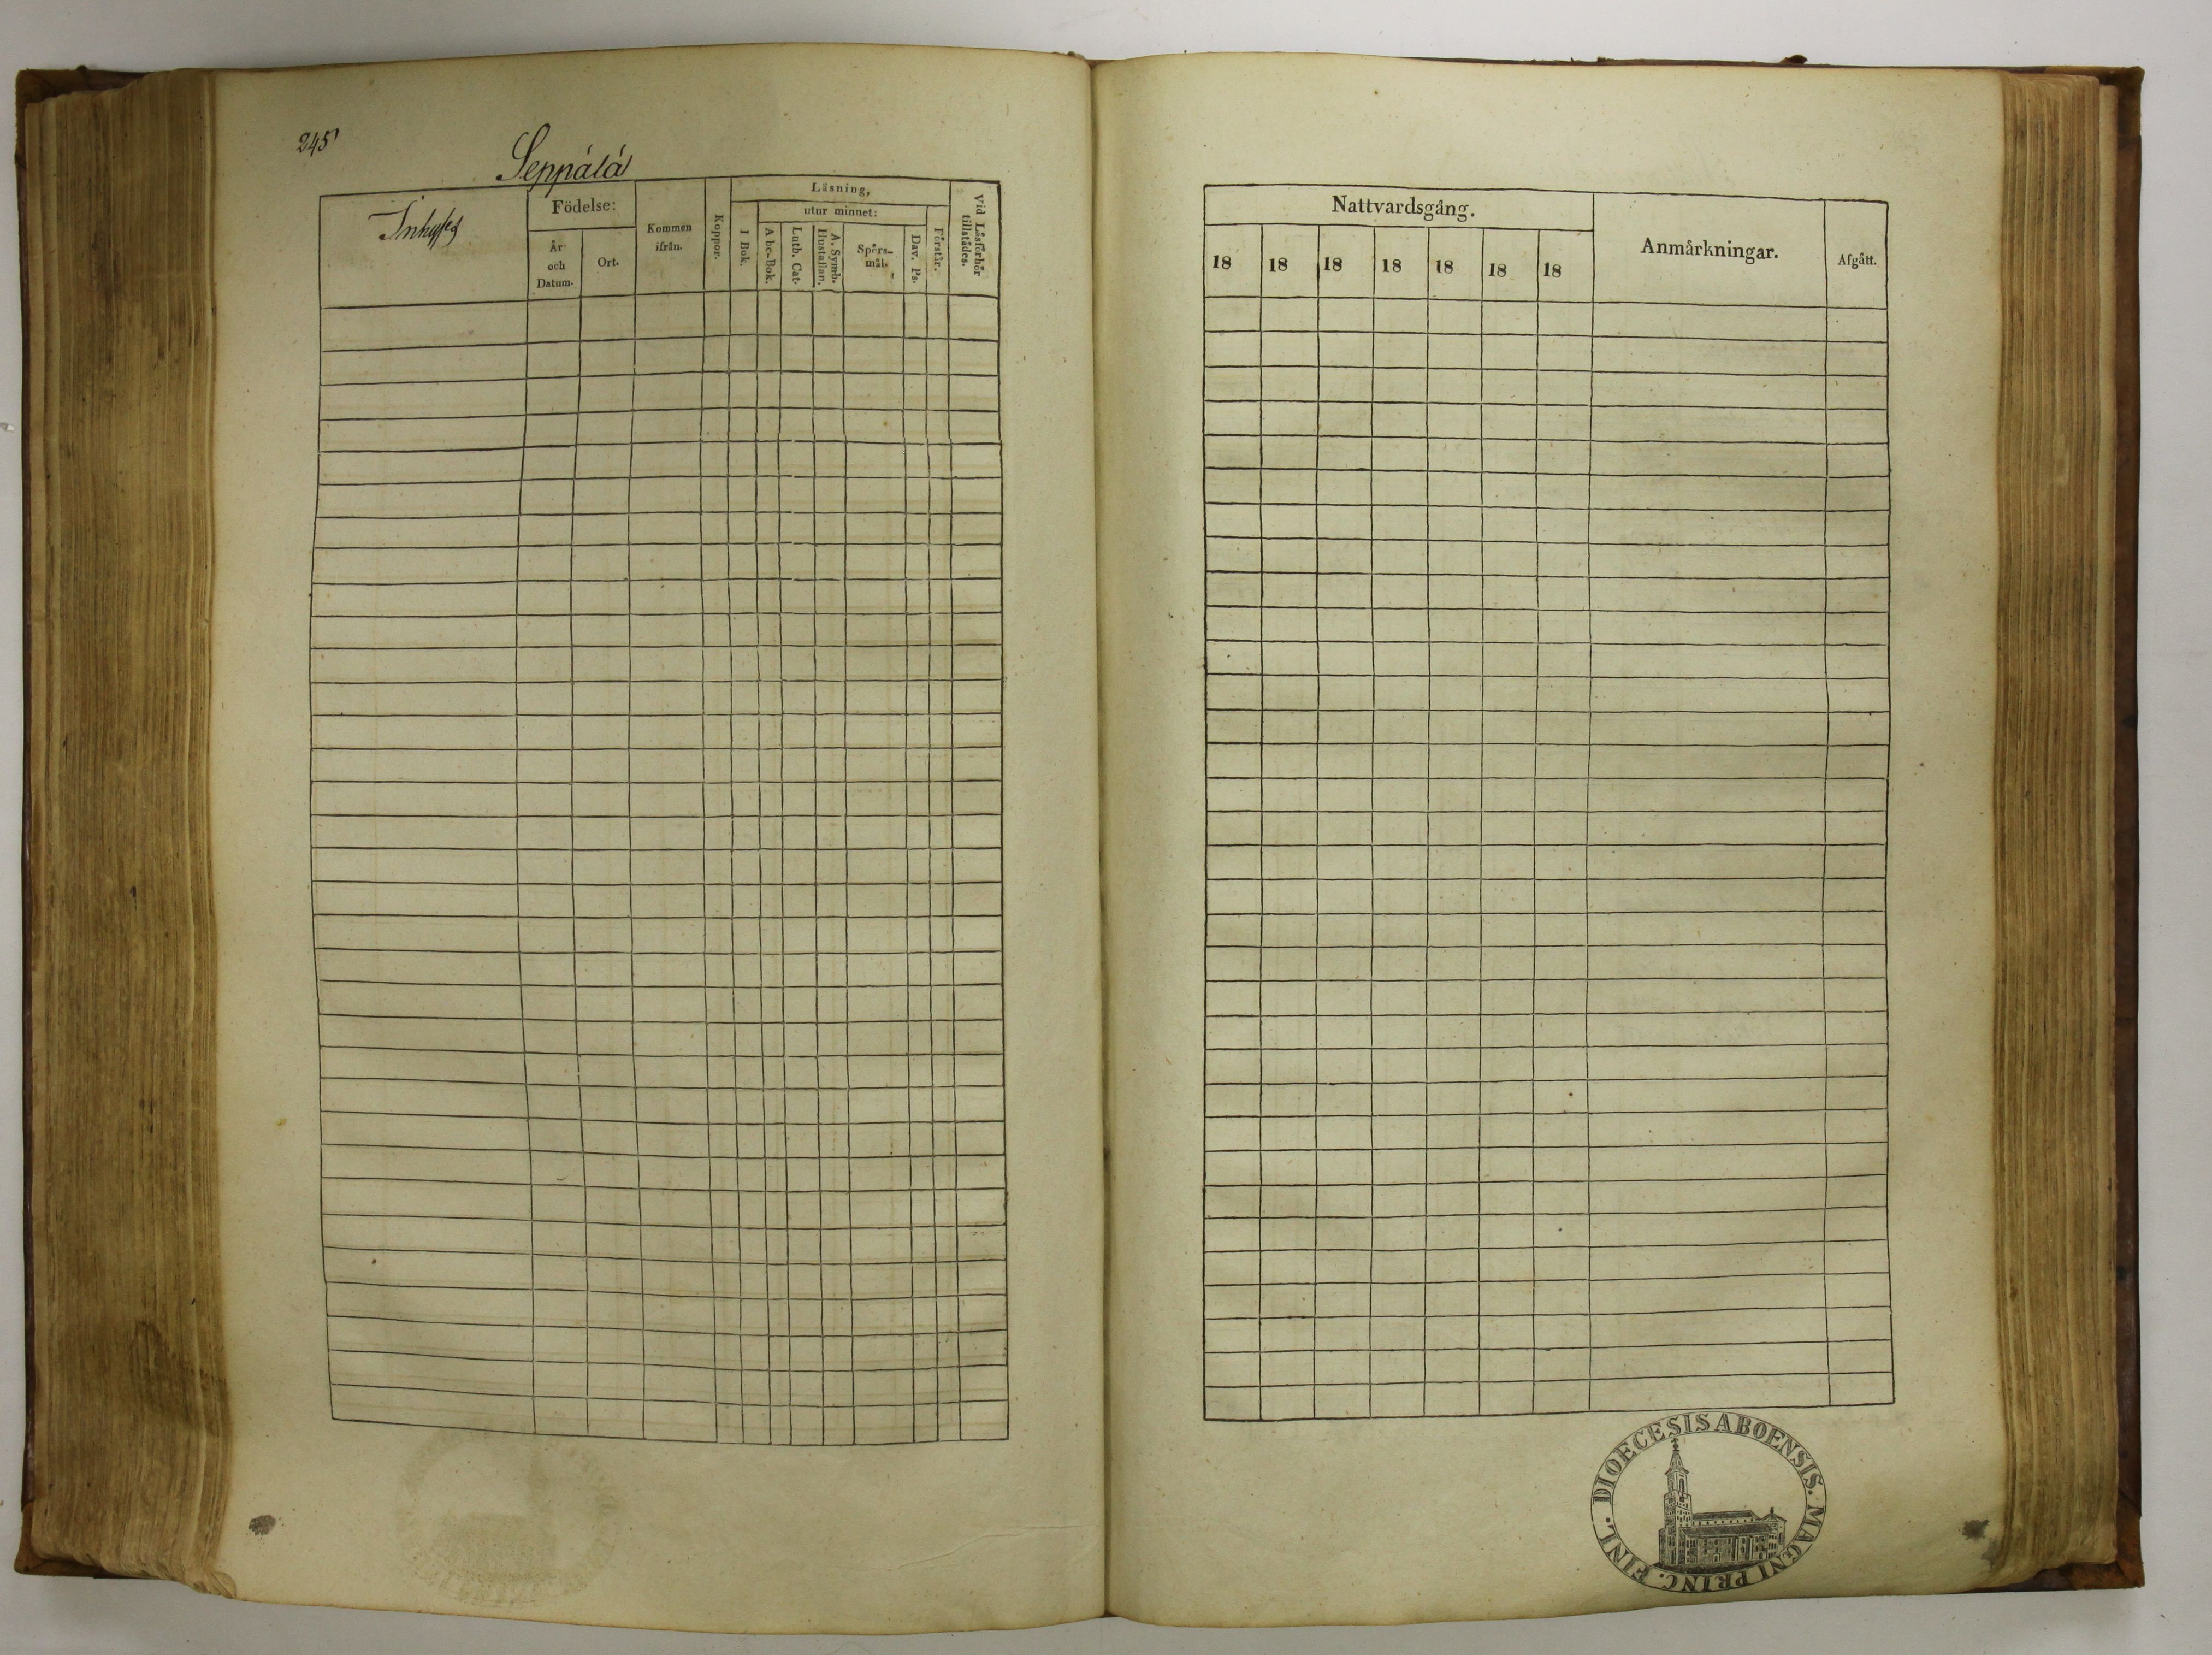 245
Seppälä
Inhyses
Födelse:
År
och
Datum.
Ort.
Kommen
ifrån.
Koppor.
Läsning,
utur minnet:
I Bok.
Abc-Bok.
Luth. Cat.
A. Symb.
Hustaflan.
Spörs-
mål.
Dav. Ps.
Förstår.
Vid Läsförhör
tillstädes.
Nattvardsgång.
18 18 18 18 18 18 18
Anmärkningar.
Afgått.
DIOECESIS ABOENSIS. MAGNI PRINC. FINL.